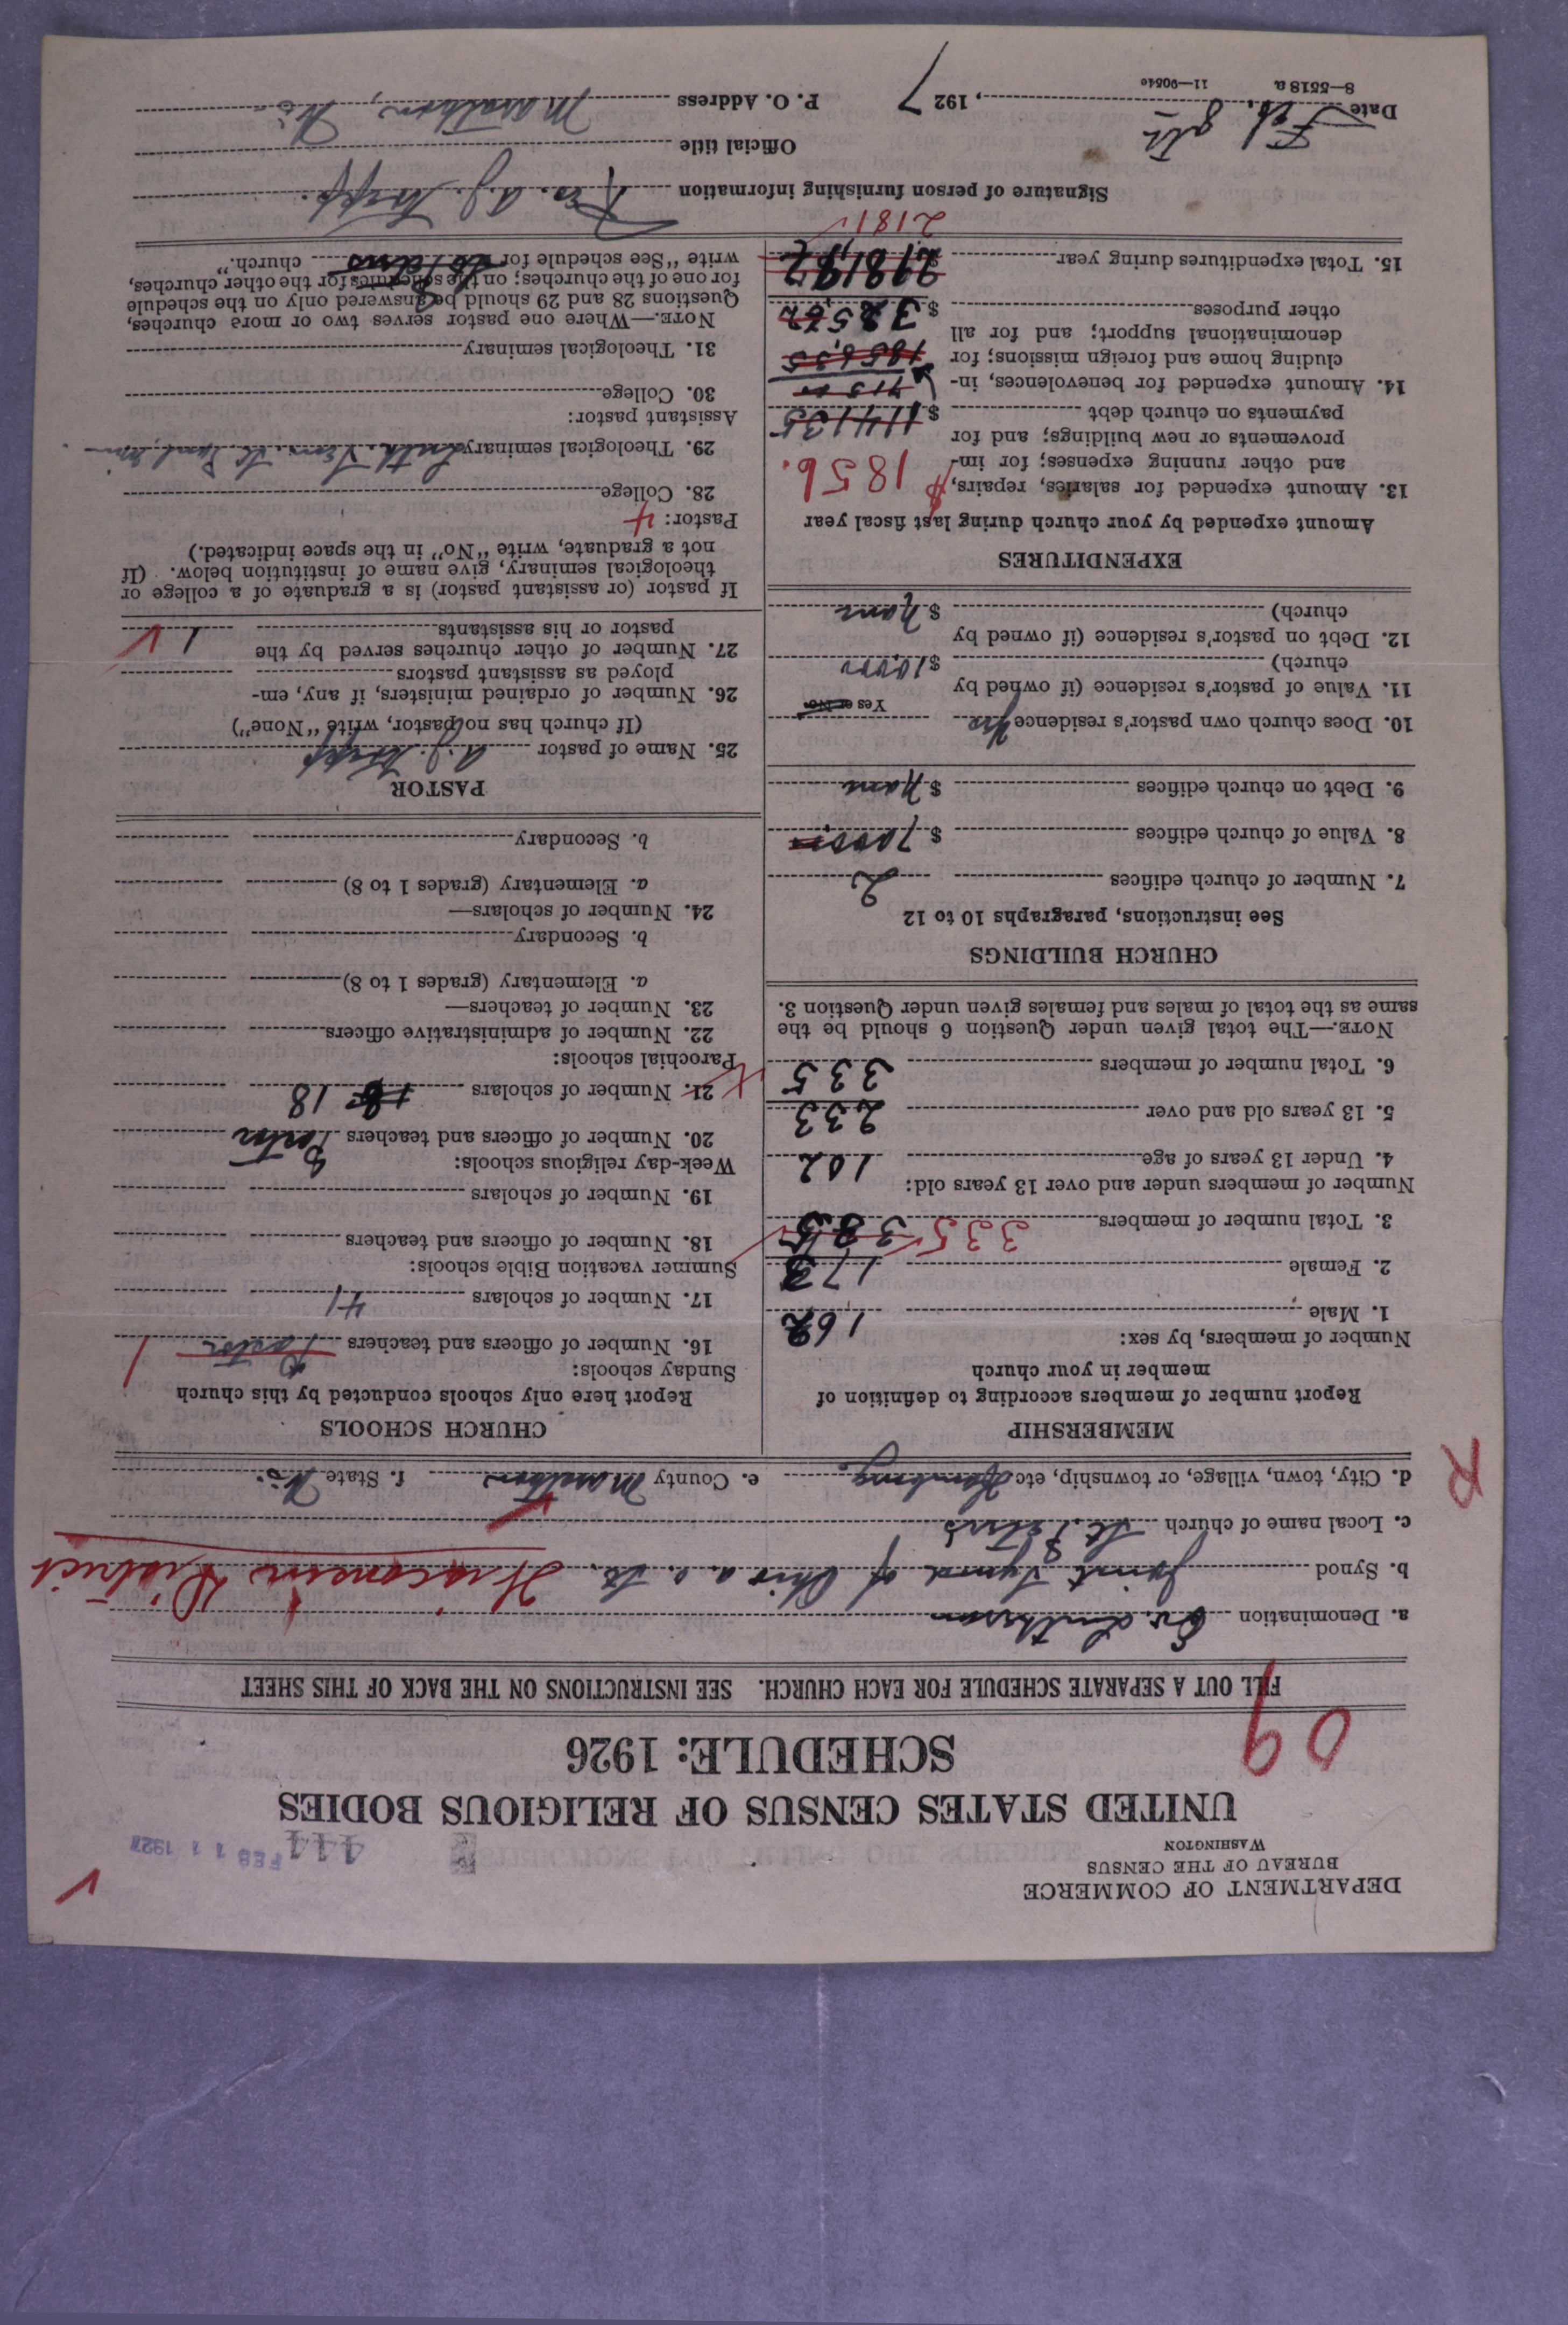 DEPARTMENT OF COMMERCE
BUREAU OF THE CENSUS
WASHINGTON
444
FEB 11 1927
UNITED STATES CENSUS OF RELIGIOUS BODIES
SCHEDULE: 1926
09
FILL OUT A SEPARATE SCHEDULE FOR EACH CHURCH. SEE INSTRUCTIONS ON THE BACK OF THIS SHEET
a. Denomination Ev. Lutheran
b. Synod Joint Synod of Ohio a. o. St. Wisconsin District
c. Local name of church St. Peters
R
d. City, town, village, or township, etc Hamburg e. County Marathon f. State Wis.
MEMBERSHIP
Report number of members according to definition of
member in your church
Number of members, by sex:
1. Male 162
2. Female 173
3. Total number of members 335 335
Number of members under and over 13 years old:
4. Under 13 years of age 102
5. 13 years old and over 233
6. Total number of members 335
NOTE.—The total given under Question 6 should be the
same as the total of males and females given under Question 3.
CHURCH BUILDINGS
See instructions, paragraphs 10 to 12
7. Number of church edifices 2
8. Value of church edifices $ 7000
9. Debt on church edifices $ None
10. Does church own pastor's residence Yes
Yes or No
11. Value of pastor's residence (if owned by
church) $ 10,000
12. Debt on pastor's residence (if owned by
church) $ None
EXPENDITURES
Amount expended by your church during last fiscal year
13. Amount expended for salaries, repairs, $ 1856.
and other running expenses; for im-
provements or new buildings; and for
payments on church debt $ 1141.35
715.00
14. Amount expended for benevolences, in-
cluding home and foreign missions; for 1856.35
denominational support; and for all
other purposes $ 325.62
15. Total expenditures during year $ 2181.97
2181
CHURCH SCHOOLS
Report here only schools conducted by this church
Sunday schools:
16. Number of officers and teachers Pastor 1
17. Number of scholars 41
Summer vacation Bible schools:
18. Number of officers and teachers
19. Number of scholars
Week-day religious schools:
20. Number of officers and teachers Pastor
21. Number of scholars 18
Parochial schools:
22. Number of administrative officers
23. Number of teachers—
a. Elementary (grades 1 to 8)
b. Secondary
24. Number of scholars—
a. Elementary (grades 1 to 8)
b. Secondary
PASTOR
25. Name of pastor A. J.
(If church has no pastor, write "None")
26. Number of ordained ministers, if any, em-
ployed as assistant pastors
27. Number of other churches served by the
pastor or his assistants 1
If pastor (or assistant pastor) is a graduate of a college or
theological seminary, give name of institution below. (If
not a graduate, write "No" in the space indicated.)
Pastor: 4
28. College
29. Theological seminary Luth. Sem. St. Paul, Minn
Assistant pastor:
30. College
31. Theological seminary
NOTE.—Where one pastor serves two or more churches,
Questions 28 and 29 should be answered only on the schedule
for one of the churches; on the schedules for the other churches,
write "See schedule for St. Peters church."
Signature of person furnishing information Rev. A. J.
Official title
Date Feb. 8th, 1927 P. O. Address Marathon, Wis.
8—5518 a 11—9054c